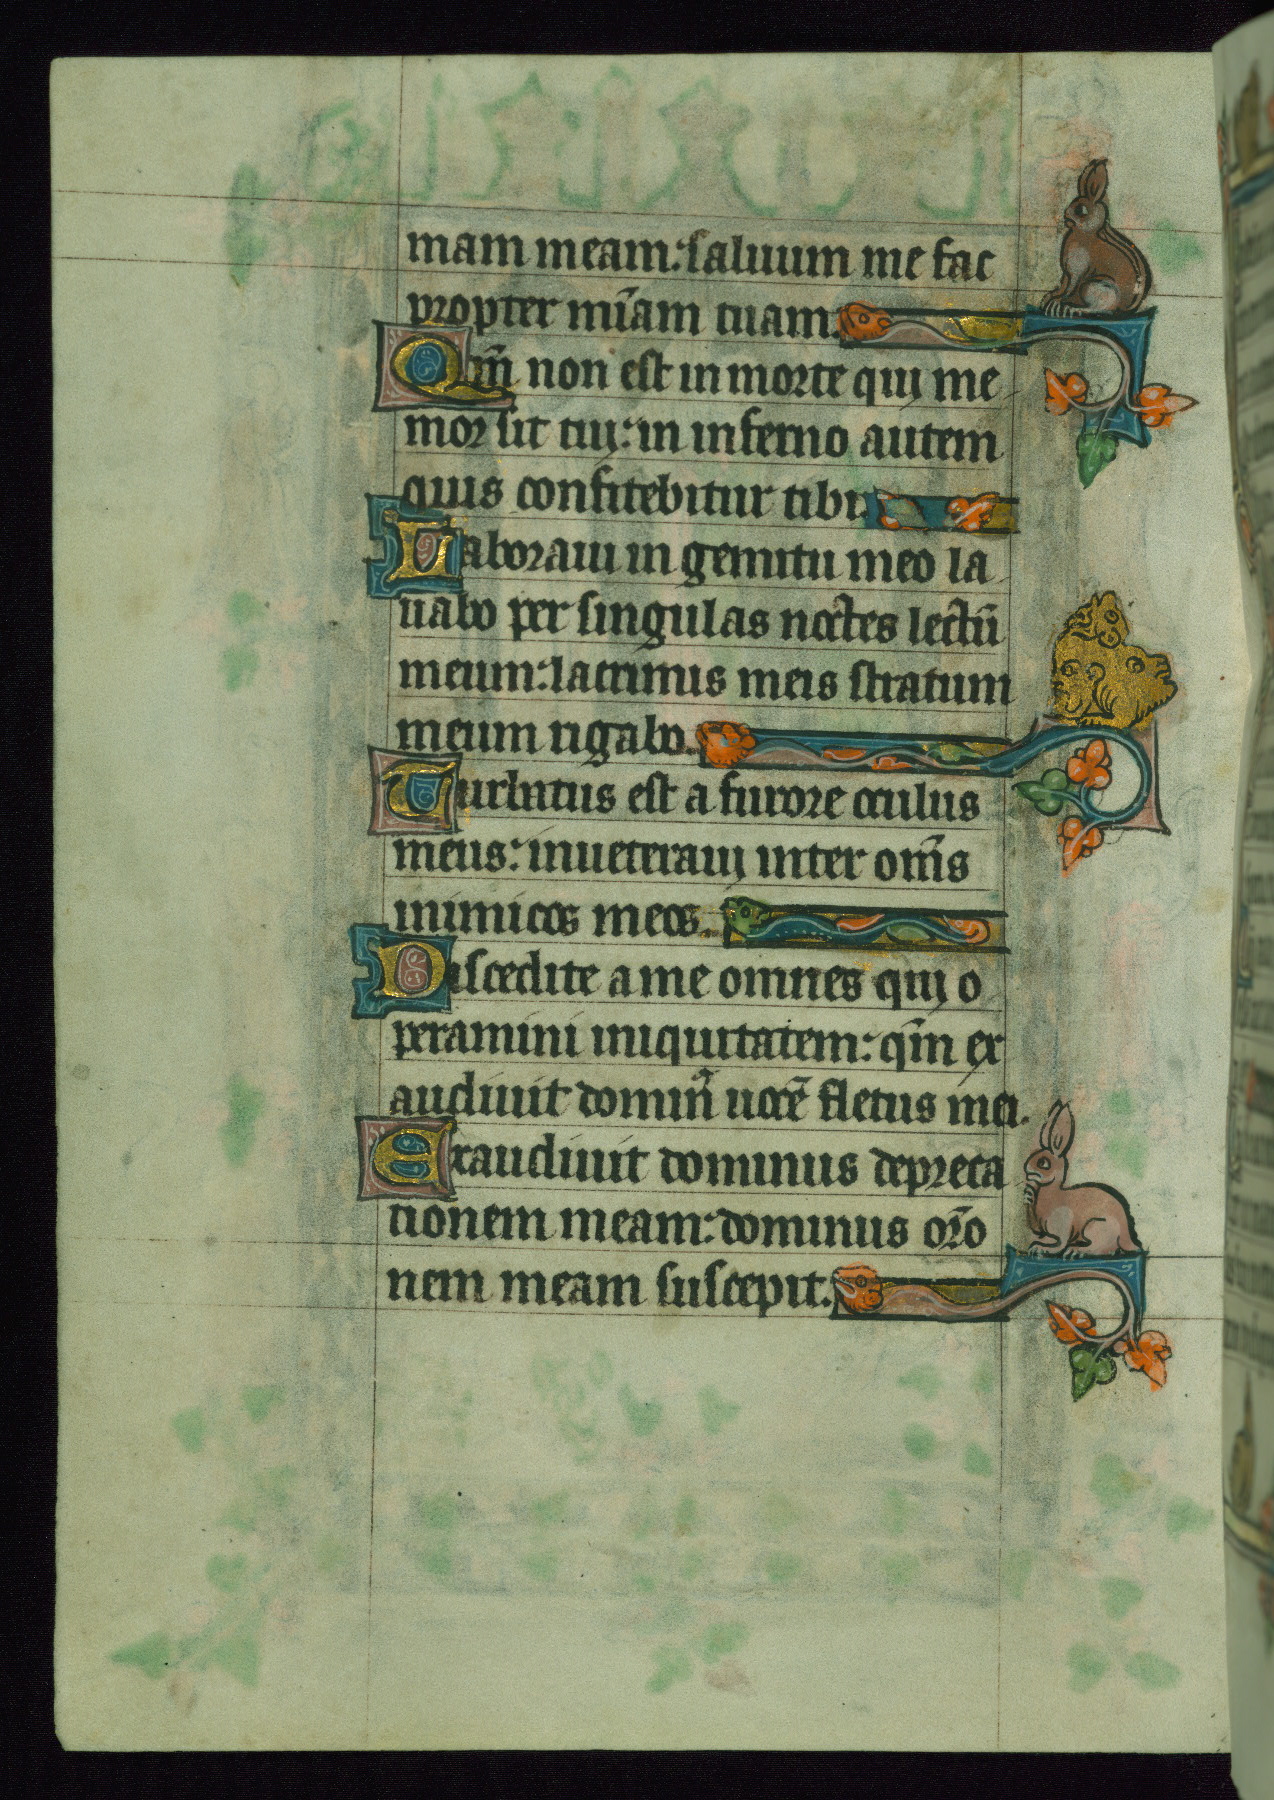 mam meam: saluum me fac
propter mīam tuam.
Qm̄ non est in morte qui me
mor sit tui: in inferno autem
quis confitebitur tibi.
Laboraui in gemitu meo la
uabo per singulas noctes lectū
meum: lacrimis meis stratum
meum rigabo.
Turbatus est a furore oculus
meus: inueteraui inter om̄s
inimicos meos.
Discedite a me omnes qui o
peramini iniquitatem: qm̄ ex
audiuit domin9 uocē fletus mei.
Exaudiuit dominus depreca
tionem meam: dominus or̄o
nem meam suscepit.